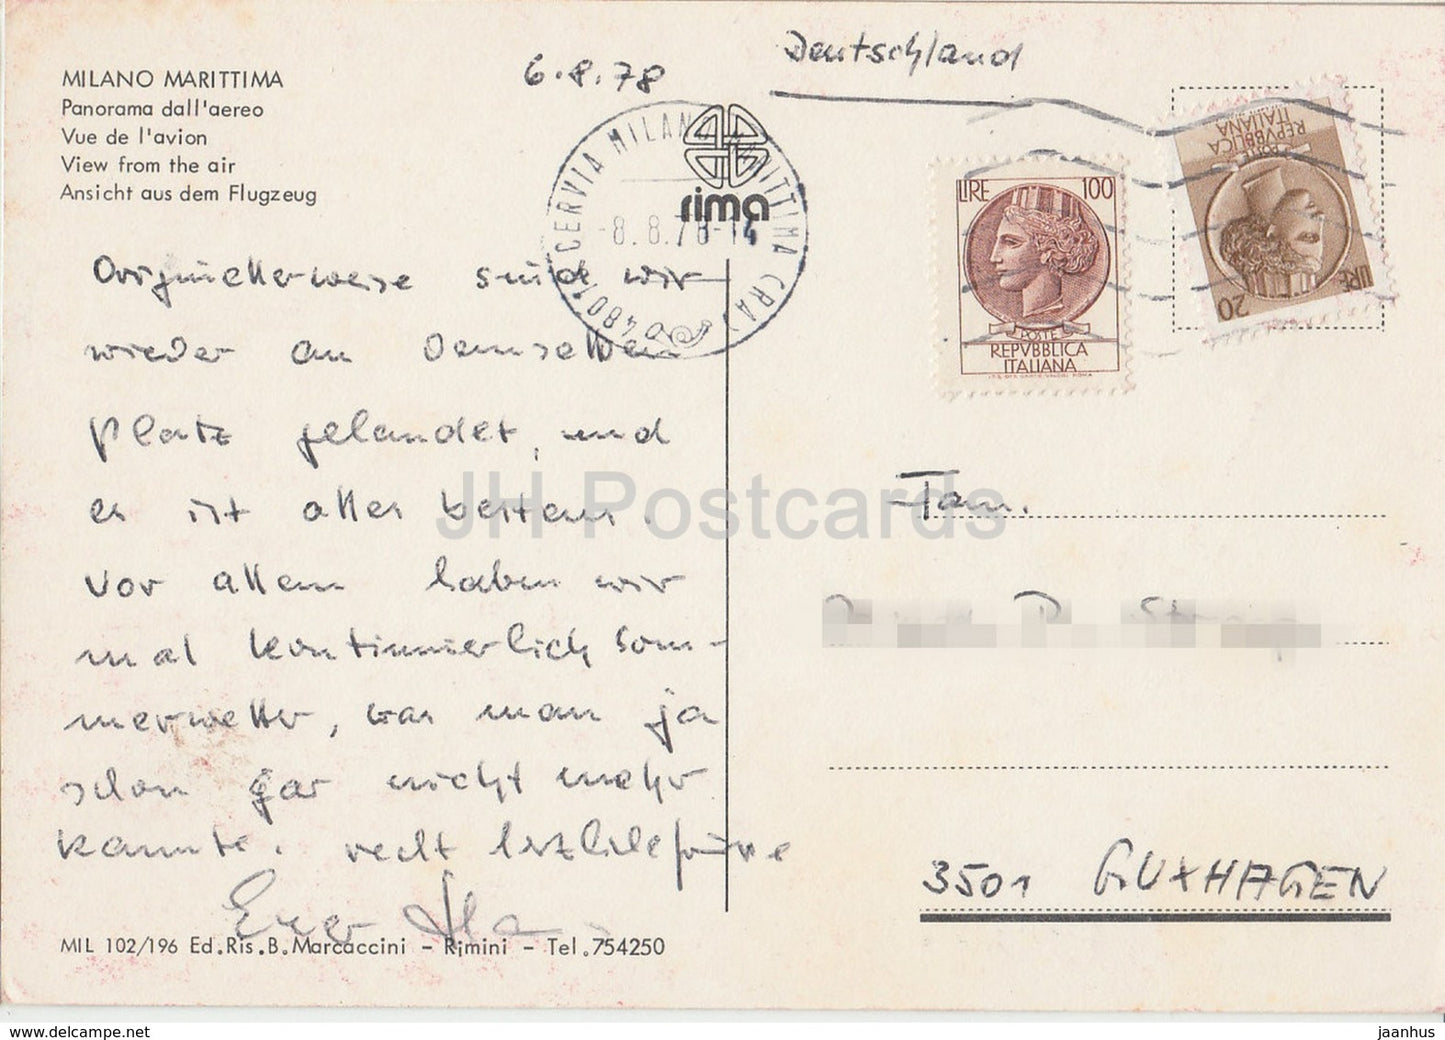 MILANO MARITTIMA
Panorama dall'aereo
Vue de l'avion
View from the air
Ansicht aus dem Flugzeug
6.8.78
Originellerweise sind wir
wieder an demselben
Platz gelandet, und
es ist alles bestens.
Vor allem haben wir
mal kontinuierlich Som-
merwetter, was man ja
schon gar nicht mehr
kannte. recht herzliche Grüße
Euer
MIL 102/196 Ed.Ris.B.Marcaccini - Rimini - Tel.754250
rima
48016 CERVIA MILANO MARITTIMA (RA)
-8.8.78-14
Deutschland
LIRE 100
POSTE
REPVBBLICA
ITALIANA
I.P.S. OFF. CARTE-VALORI ROMA
POSTE
REPVBBLICA
ITALIANA
LIRE 20
Fam.
3501 GUXHAGEN
JH Postcards
www.delcampe.net
jaanhus